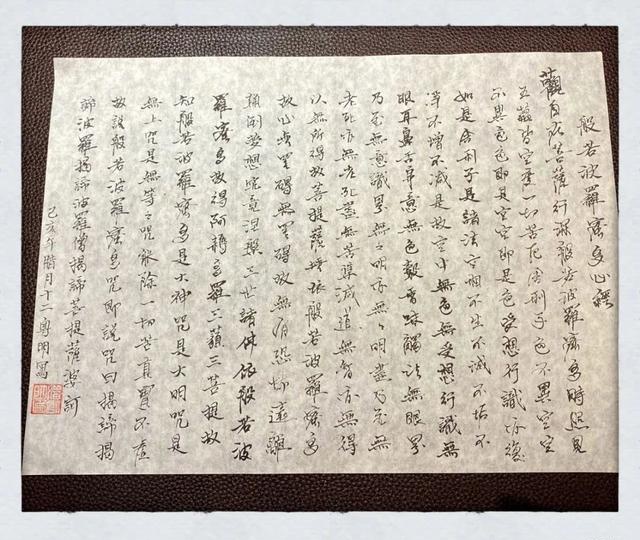 般若波羅蜜多心經
觀自在菩薩行深般若波羅蜜多時照見
五蘊皆空度一切苦厄舍利子色不異空空
不異色色即是空空即是色受想行識亦復
如是舍利子是諸法空相不生不滅不垢不
淨不增不減是故空中無色無受想行識無
眼耳鼻舌身意無色聲香味觸法無眼界
乃至無意識界無無明亦無無明盡乃至無
老死亦無老死盡無苦集滅道無智亦無得
以無所得故菩提薩埵依般若波羅蜜多
故心無罣礙無罣礙故無有恐怖遠離
顛倒夢想究竟涅槃三世諸佛依般若波
羅蜜多故得阿耨多羅三藐三菩提故
知般若波羅蜜多是大神咒是大明咒是
無上咒是無等々咒能除一切苦真實不虛
故說般若波羅蜜多咒即說咒曰揭諦揭
諦波羅揭諦波羅僧揭諦菩提薩婆訶
己亥年腊月十二粵明寫